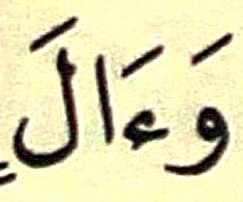 وَءَالَ